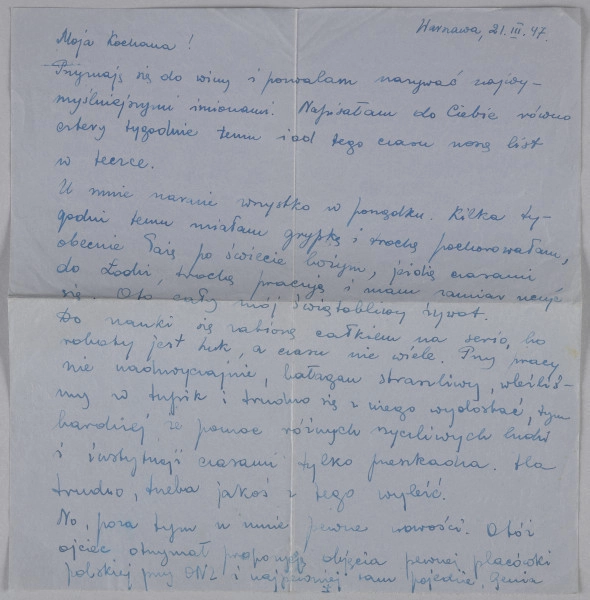 Warszawa, 21.III.47.
Moja Kochana!
Przyznaję się do winy i pozwalam nazywać najwy-
myślniejszymi imionami. Napisałam do Ciebie równo
cztery tygodnie temu i od tego czasu noszę list
w teczce.
U mnie naogół wszystko w porządku. Kilka ty-
godni temu miałam grypkę i trochę pochorowałam,
obecnie łażę po świecie bożym, jeżdżę czasami
do Łodzi, trochę pracuję i mam zamiar uczyć
się. Oto cały mój świątobliwy żywot.
Do nauki się zabiorę całkiem na serio, bo
roboty jest huk, a czasu nie wiele. Przy pracy
nie nadzwyczajnie, bałagan straszliwy, wleźliś-
my w tupik i trudno się z niego wydostać, tym
bardziej że pomoc różnych życzliwych ludzi
i instytucji czasami tylko przeszkadza. Ale
trudno, trzeba jakoś z tego wyleźć.
No, poza tym u mnie pewne nowości. Otóż
ojciec otrzymał propozycję objęcia pewnej placówki
polskiej przy ONZ i najpewniej sam pojedzie, Genia